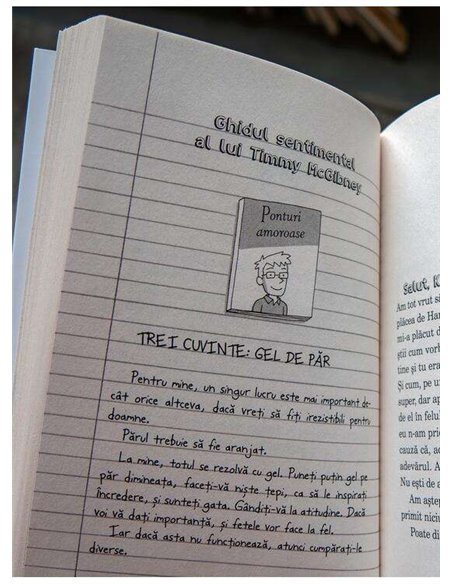 Ghidul sentimental
al lui Timmy McGibney
Ponturi
amoroase
TREI CUVINTE: GEL DE PĂR
Pentru mine, un singur lucru este mai important de-
cât orice altceva, dacă vreți să fiți irezistibili pentru
doamne.
Părul trebuie să fie aranjat.
La mine, totul se rezolvă cu gel. Puneți puțin gel pe
păr dimineața, faceți-vă niște țepi, ca să le inspirați
încredere, și sunteți gata. Gândiți-vă la atitudine. Dacă
voi vă dați importanță, și fetele vor face la fel.
Iar dacă asta nu funcționează, atunci cumpărați-le
diverse.
Salut, K
Am tot vrut să
plăcea de Har
mi-a plăcut d
știi cum vorb
tine și tu era
Și cum, pe u
super, dar ap
de el în felu
eu n-am pri
cauză că, a
adevărul. A
Nu ești de a
Am aștep
primit niciu
Poate di